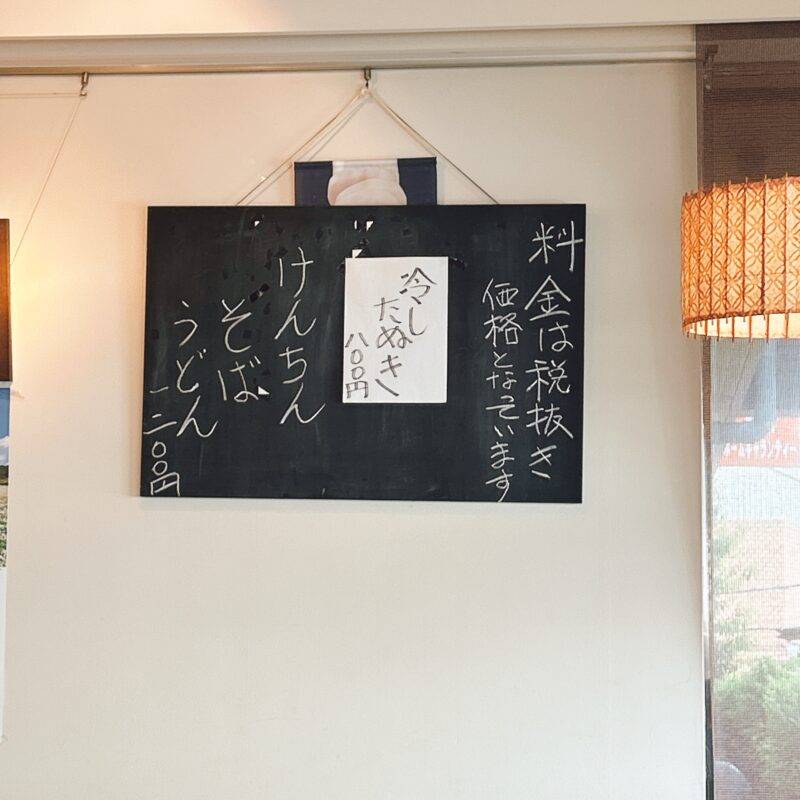 料金は税抜き
価格となっています
冷し
たぬき
八〇〇円
けんちん
そば
うどん
一二〇〇円